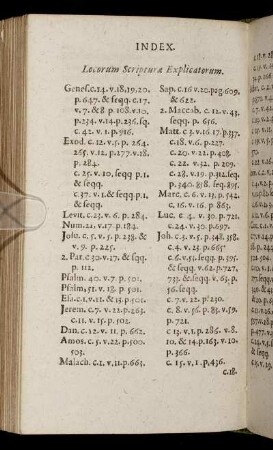 INDEX.
Locorum Scripturæ Explicatorum.
Genes. c. 14. v. 18, 19, 20.
p. 647. & seqq. c. 17.
v. 7. & 8 p. 108. v. 10.
p. 234. v. 14. p. 236. sq.
c. 42. v. 1. p. 916.
Exod. c. 12. v. 5. p. 264.
265. v. 12. p. 277. v. 18.
p. 284.
c. 25. v. 10, seqq p. 1.
& seqq.
c. 37. v. 1. & seqq p. 1.
& seqq.
Levit. c. 23. v. 6. p. 284.
Num. 21. v. 17. p. 184.
Joso. c. 5. v. 5. p. 238. &
v. 9. p. 225.
2. Par. c 30. v. 17. & sqq
p. 112.
Psalm. 40. v. 7. p. 501.
Psalm, 51. v. 18. p. 501.
Esa. c. 1. v. 11. & 13. p. 501.
Jerem. c. 7. v. 22. p. 263.
c. 11. v. 15. p. 502.
Dan. c. 12. v. 11. p. 662.
Amos. c. 5. v. 22. p. 500.
503.
Malach. c. 1. v, 11. p. 663.
Sap. c. 16 v. 20. pag. 609.
& 622.
2. Maccab. c. 12. v. 43.
seqq. p. 656.
Matt. c 3. v. 16. 17. p. 317.
c. 18. v. 6. p. 227.
c. 20. v. 22. p. 408.
c. 22. v. 32. p. 209.
c. 28. v. 19. p. 312. sq.
p. 340. 818. seq. 895.
Marc. c. 13. v. 5. p. 542.
c. 16. v. 16. p. 865.
Luc. c 4. v. 30. p. 721.
c. 24. v. 30. p. 697.
Joh. c. 3. v. 5. p. 348. 358.
c. 4. v. 23. p. 665.
c. 6. v. 51. seqq. p. 395.
& seqq. v. 62. p. 727,
c. 7. v. 22. p. 230.
c. 8. v. 56. p. 83. v. 59.
p. 721.
c 13. v. 1. p. 286. v. 8.
10. & 14. p. 163. v. 10.
p. 366.
c. 15. v. 1. p. 436.
c. 18.